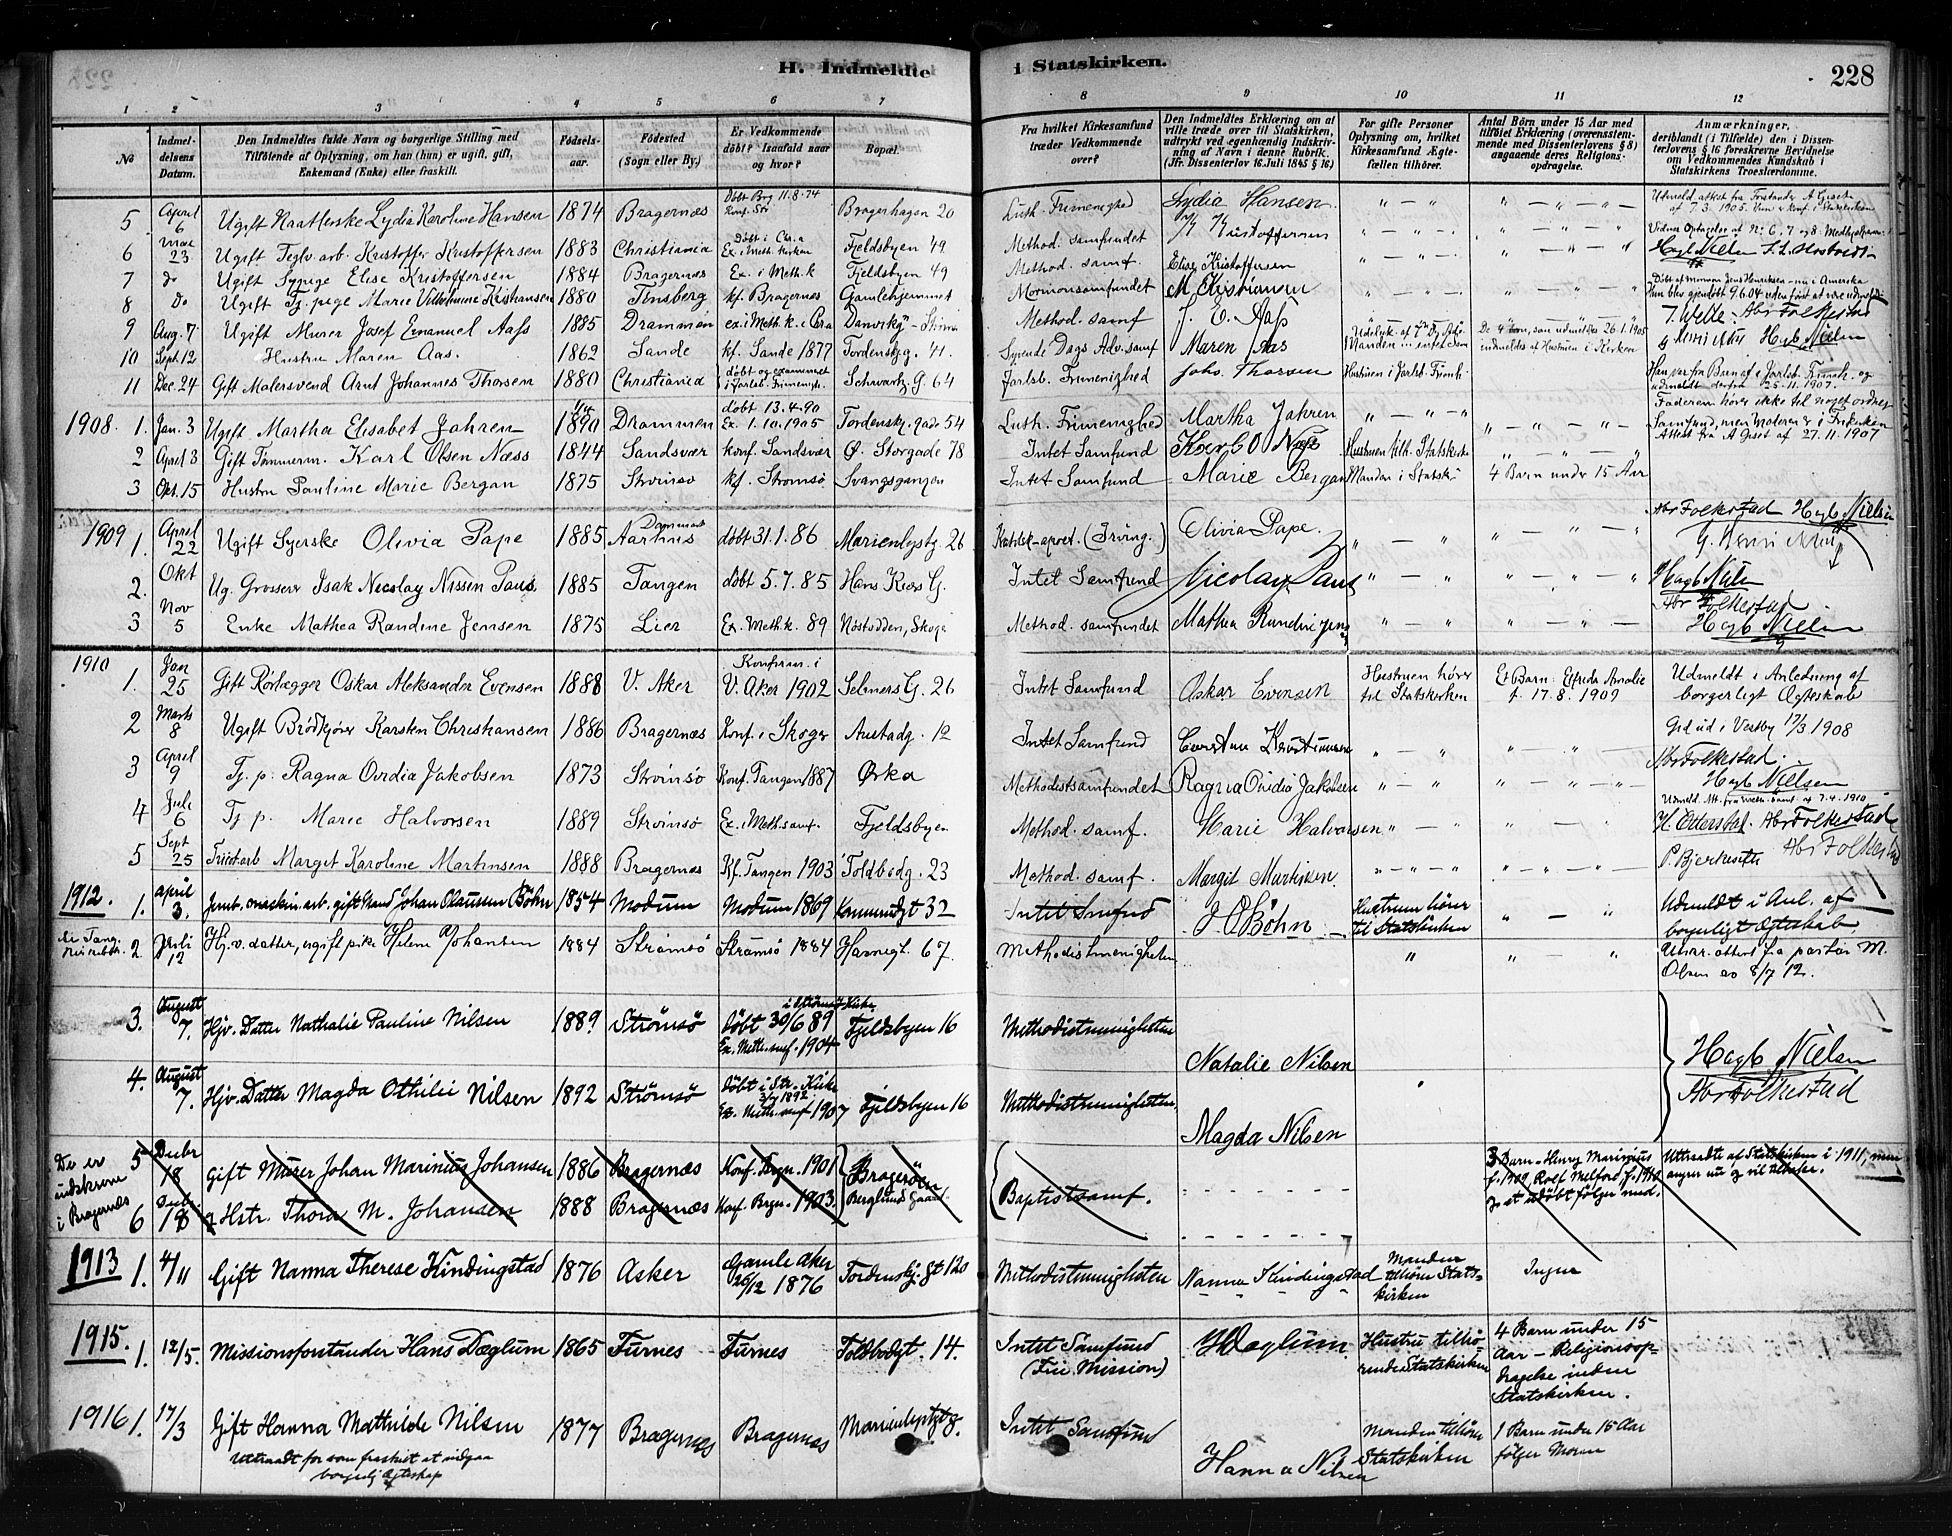 H. Indmeldte i Statskirken. 228
1 2 3 4 5 6 7 8 9 10 11 12
No
Indmeldelsens Datum.
Den Indmeldtes fulde Navn og borgerlige Stilling med Tilføiende af Oplysning, om han (hun) er ugift, gift, Enkemand (Enke) eller fraskilt.
Fødselsaar.
Fødested (Sogn eller By.)
Er Vedkommende döbt? Isaafald naar og hvor?
Bopæl.
Fra hvilket Kirkesamfund træder Vedkommende over?
Den Indmeldtes Erklæring om at ville træde over til Statskirken, udtrykt ved egenhændig Indskrivning af Navn i denne Rubrik. (Jfr. Dissenterlov 16. Juli 1845 § 16)
For gifte Personer Oplysning om, hvilket Kirkesamfund Ægtefællen tilhører.
Antal Börn under 15 Aar med tilföiet Erklæring (overensstemmende med Dissenterlovens § 8) angaaende deres Religionsopdragelse.
Anmærkninger, deriblandt (i Tilfælde) den i Dissenterlovens § 16 foreskrevne Bevidnelse om Vedkommendes Kundskab i Statskirkens Troeslærdomme.
5 April 6 Ugift Lydia Karoline Hansen 1874 Bragernæs Døbt Brag 11.8.74 Bragerhagen 20 Luth. Frimenighed Lydia Hansen " — " " — " — "
6 Mai 23 Ugift Teglv. arb. Kristoffer Kristoffersen 1883 Christiania Døbt i Chr.a Ex. i Meth. kirken Fjeldsbyen 49 Method. samfundet " — " — "
7 do Ugift Sypige Elise Kristoffersen 1884 Bragernæs Ex. i Meth. k Fjeldsbyen 49 Method. samf. Elise Kristoffersen
8 do Ugift Tj. pige Marie Vilhelmine Kristiansen 1880 Tønsberg kf. Bragernæs Gamlehjemmet Mormonsamfundet M Christiansen
9 Aug. 7 Ugift Murer Josef Emanuel Aass 1885 Drammen ex. i Meth. k. i Method. samf J. E. Aass
10 Sept. 12 Hustru Maren Aas. 1862 Sande kf. Sande 1877 Tordenskj. g. 41. Syvende Dags Adv. samf Maren Aas
11 Dec. 24 Gift Malersvend Arnt Johannes Thorsen 1880 Christiania døbt og examineret i Jarlsb. Frimenigh. Schwartz. G. 64 Jarlsb. Frimenighed Johs. Thorsen Hustruen i Jarlsb. Frimh. 25.11.1907.
1908. 1. Jan. 3 Ugift Martha Elisabet Jahren 1890 Drammen døbt 13.4.90 Ex. 1.10.1905 Tordenskj. gade 54 Luth. Frimenighed Martha Jahren " — " — " Faderen hører ikke til noget ordnet Samfund, men Moderen er i Frikirken Attest fra A Giset af 27.11.1907
2 April 3 Gift Tømmerm. Karl Olsen Næss 1844 Sandsvær konf. Sandsvær Ø. Storgade 78 Intet Samfund Karl O Næss Hustruen tilh. Statskirke
3 Okt. 15 Hustru Pauline Marie Bergan 1875 Strømsø kf. Strømsø Svangsgangen Intet Samfund Marie Bergan Manden i Statsk. 4 Barn under 15 Aar
1909 1. April 22 Ugift Syerske Olivia Pape 1885 Aarhus Danmark døbt 31.1.86 Marienlystg. 26 Katolsk-apost. (Irving.) Olivia Pape. Abr Folkestad Hagb Nielsen
2. Okt Ug. Grosserer Isak Nicolay Nissen Paus 1885 Tangen døbt 5.7.85 Hans Kiærs G. Intet Samfund Nicolay Paus
3 Nov 5 Enke Mathea Randine Jensen 1875 Lier Ex. Meth.k. 89 Nøstodden, Skoger Method. samfundet Mathea Randine Jens Abr Folkestad Hagb Nielsen
1910 1. Jan 25 Gift Rørlægger Oskar Aleksander Evensen 1888 V. Aker Konfirm. i V. Aker 1902 Selmers G. 26 Intet Samfund Oskar Evensen Hustruen hører til Statskirken Et Barn: Elfrida Amalie f. 17.8.1909 Udmeldt i Anledning af borgerligt Ægteskab
2 Marts 8 Ugift Brødkjører Karsten Christiansen 1886 Bragernæs Konf. i Skoger Austadg. 12 Intet Samfund Gud ud i Vestby 17/3 1908
3 April 9 Tj. p. Ragna Ovidia Jakobsen 1873 Strømsø Konf. Tangen 1887 Ørka Methodistsamfundet Ragna Ovidia Jakobsen Abr Folkestad. Hagb Nielsen
4 Juli 6 Tj. p. Marie Halvorsen 1889 Strømsø Ex. i Meth. samf. Fjeldsbyen Method. samf. Marie Halvorsen Abr Folkestad
5 Sept 25 Margit Karoline Martinsen 1888 Bragernæs Kf. Tangen 1903 Toldbodg. 23 Method. samf. Margit Martinsen. P. Bjerkeseth Abr Folkestad
1912. 1. april 3. Jernb. maskin. arb. gift mand Johan Olaussen Bøhn 1854 Modum Modum 1869 Konnerudgt 32 Intet Smfnd J. O Bøhn Hustruen hører til Statskirken Udmeldt i Anl. af borgerligt Ægteskab
2. Juli 12 Hj. v. datter, ugift pike Helene Johansen 1884 Strømsø Strømsø 1884 Havnegt. 67. Methodistmenigheten attest fra pastor M. Olsen av 8/7 12.
3. August 7. Hjv. Datter Nathalie Pauline Nilsen 1889 Strømsø Døbt 30/6 89 i Strømsø Kirke Ex. Meth. smf. 1904 Fjeldsbyen 16 Methodistmenigheten Natalie Nilsen Hagb Nielsen Abr Folkestad
4. August 7. Hjv. Datter Magda Othilie Nilsen 1892 Strømsø Døbt i Str. Kirke 3/7 1892 Ex. Meth. smf 1907 Fjeldsbyen 16 Methodistmenigheten, Magda Nilsen
De er indskrevne i Bragernæs
5 Decbr 18 Gift Murer Johan Marinius Johansen 1886 Bragernæs Konf. Bragn. 1901 Bragerøen Berglund Gaard Baptistsamf. 3 Barn - Henry Marinius f. 1909, Rolf Melford f. 1910 og et udøbt følger med. Uttraadte af Statskirken i 1911, men angrer nu og vil tilbake.
6 Decbr 18 g Hstr. Thora M. Johansen 1888 Bragernæs Konf. Bragn. 1903.
1913 1. 4/11 Gift Nanna Therese Kindingstad 1876 Asker Gamle Aker 26/12 1876 Tordenskj. gt 120 Methodistmenigheten Nanna Kindingstad Manden tilhører Statskirken Ingen
1915. 1. 12/5. Missionsforstander Hans Dæglum 1865 Furnes Furnes Toldbodgt. 14. Intet Samfund (Frie Mission) H Dæglum. Hustru tilhørende Statskirken 4 Barn under 15 Aar — Religionsopdragelse inden Statskirken.
1916 1. 17/3 Gift Hanna Mathilde Nilsen 1877 Bragernæs Bragernæs Marienlystgt 8. Intet Samfund Hanna Nilsen Manden tilhører Statskirken 1 Barn under 15 Aar følger Moren
Uttraadt for som fraskilt at indgaa borgerlig Ægteskap